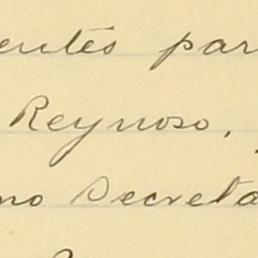 entés par
Reynoso,
no Secreta